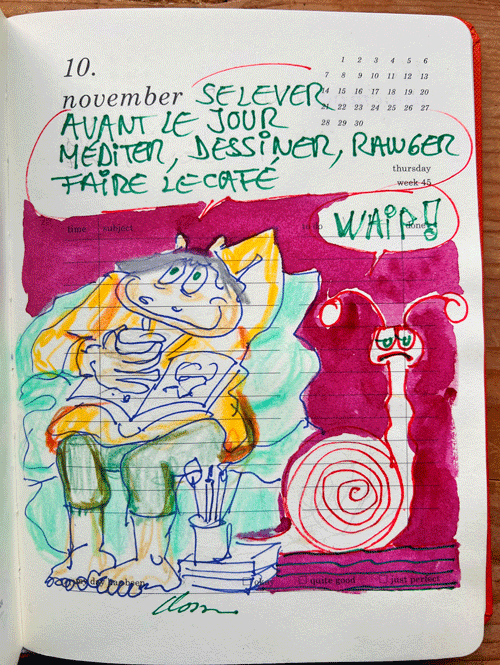 10.
november
1 2 3 4 5 6
7 8 9 10 11 12 13
14 15 16 17 18 19 20
21 22 23 24 25 26 27
28 29 30
SE LEVER
AVANT LE JOUR
MÉDITER, DESSINER, RANGER
FAIRE LE CAFÉ
thursday
week 45
WAIP!
time subject to do done
day has been okay quite good just perfect